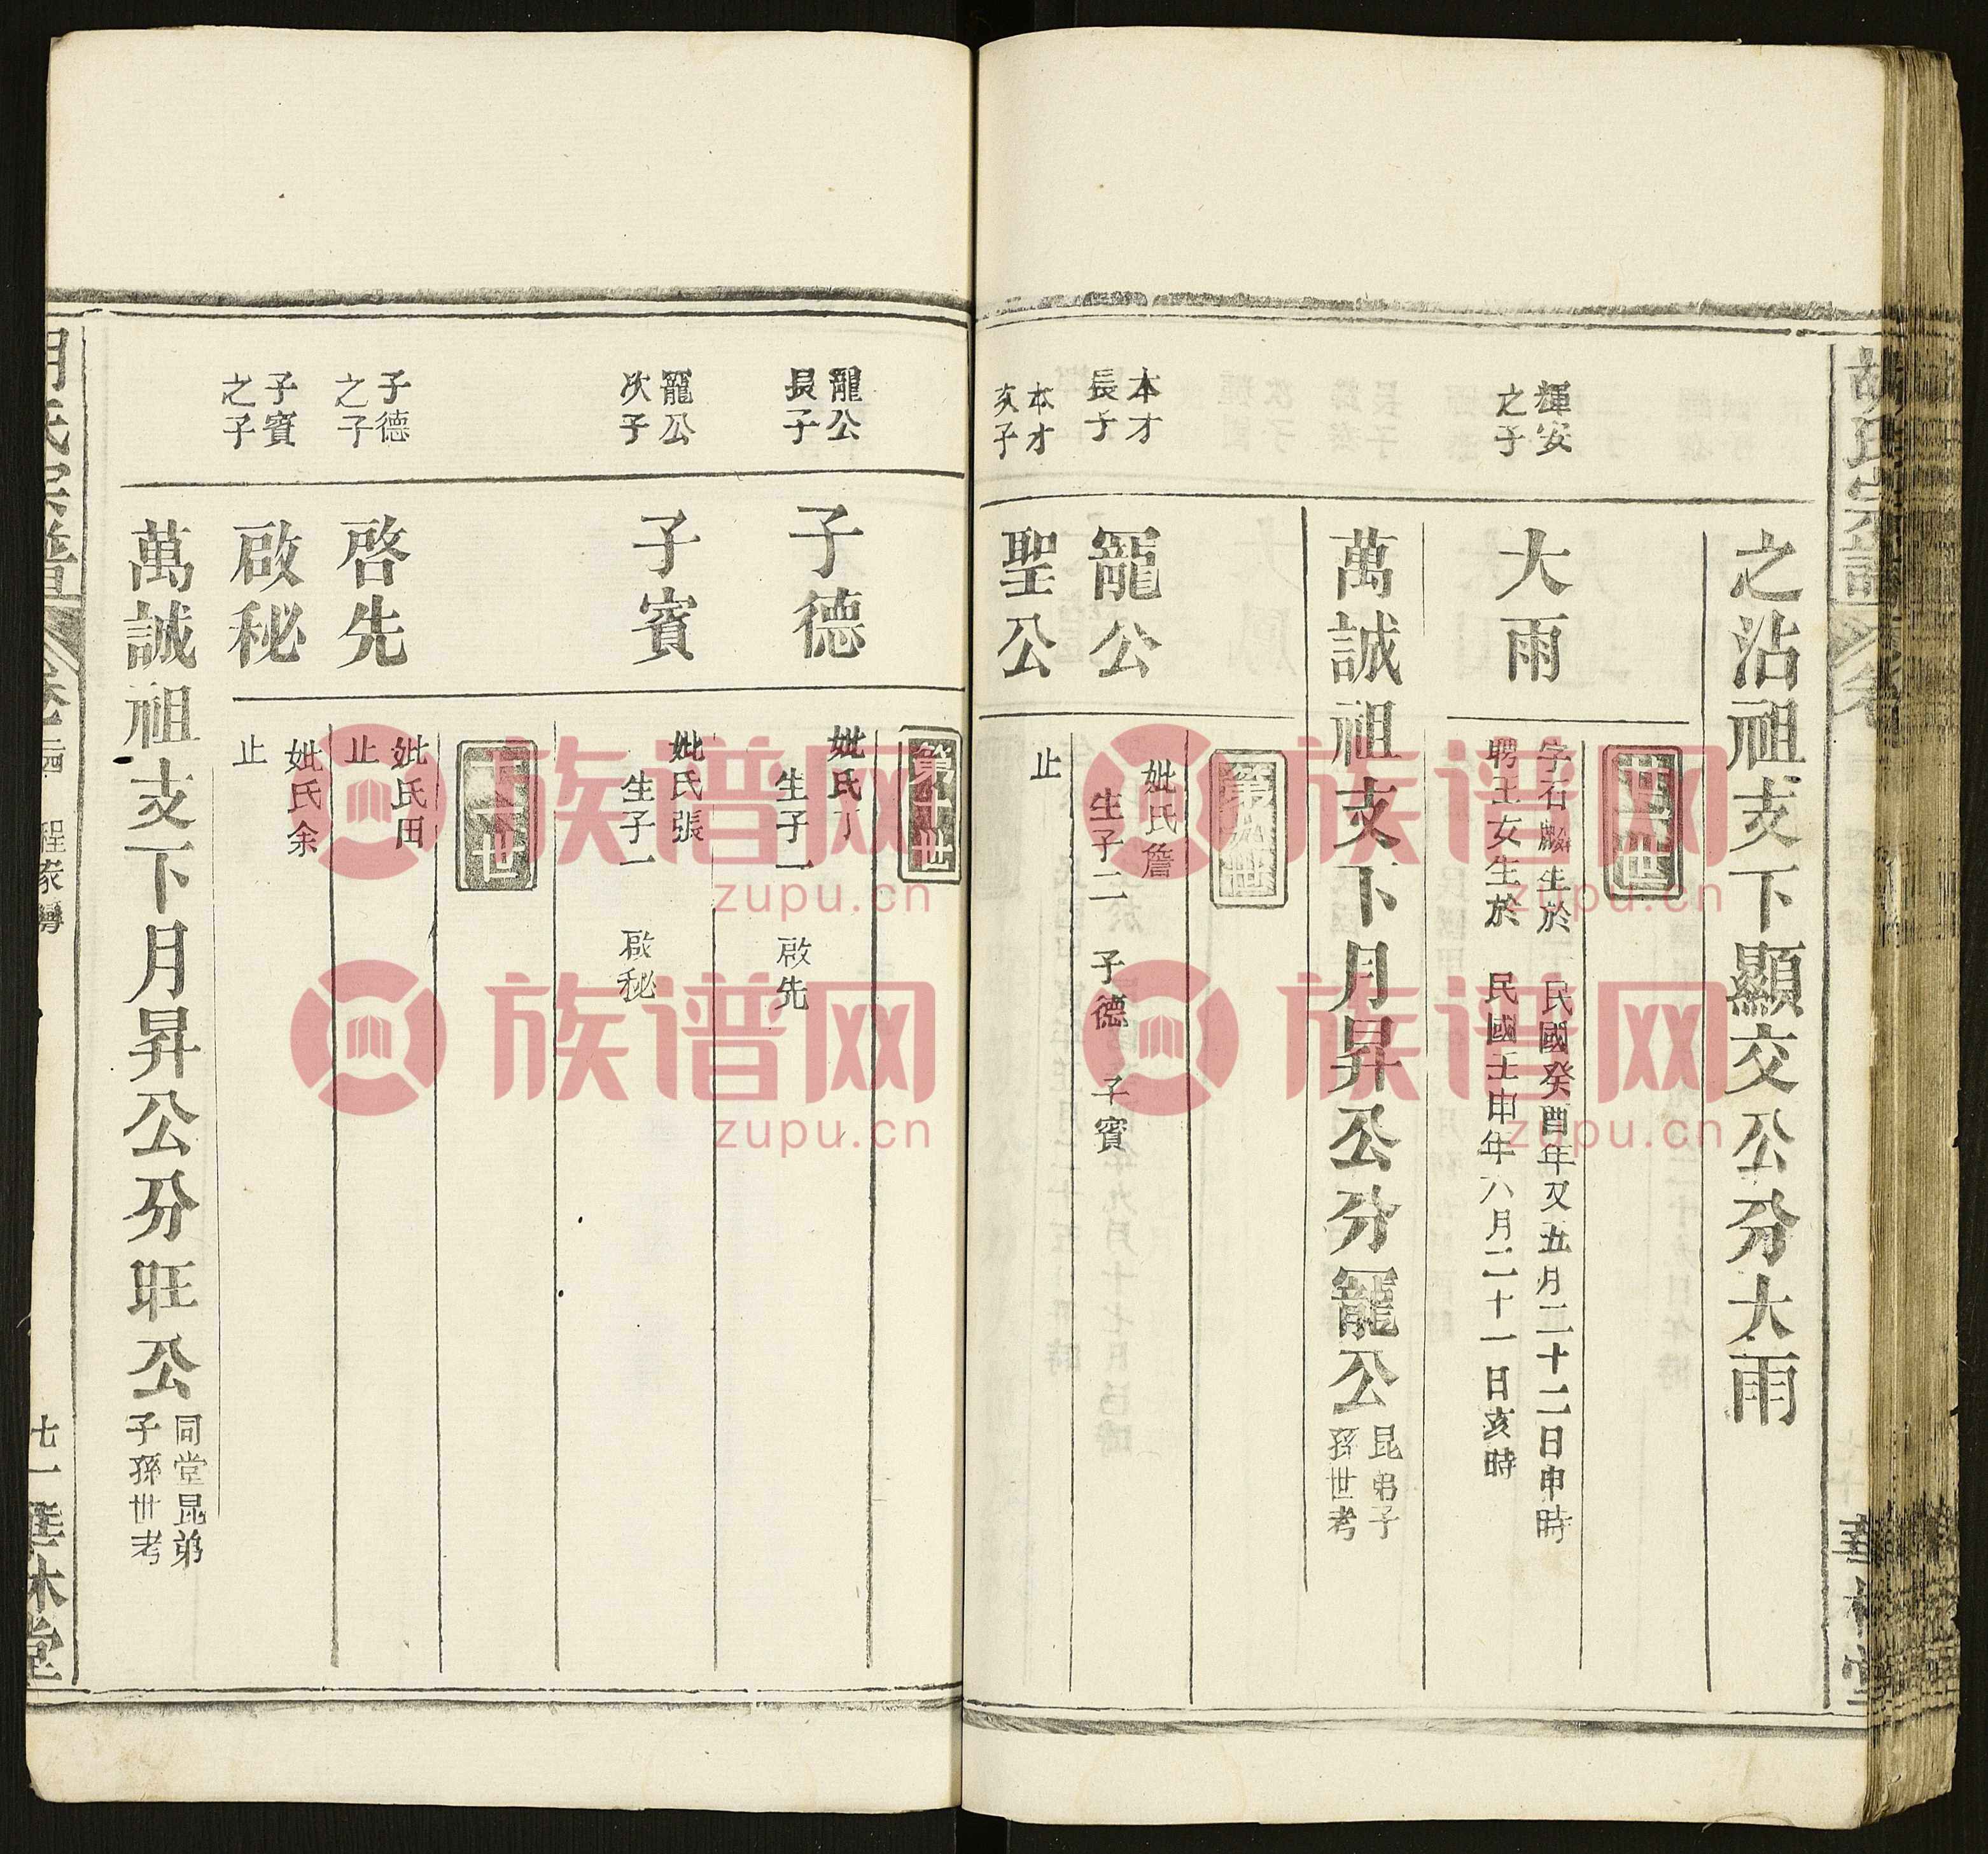 胡氏宗譜
華林堂
之沾祖支下顯交公分大雨
廿一世
輝安
之子
大雨
字石麟生於 民國癸酉年又五月二十二日申時
聘王女生於 民國壬申年八月二十一日亥時
萬誠祖支下月昇公分寵公
昆弟子
孫世考
第九世
本才
長子
寵公
妣氏詹
生子二 子德 子賓
本才
次子
聖公
止
第十世
寵公
長子
子德
妣氏丁
生子一 啟先
寵公
次子
子賓
妣氏張
生子一 啟秘
十一世
子德
之子
啓先
妣氏田
止
子賓
之子
啟秘
妣氏余
止
萬誠祖支下月昇公分旺公
同堂昆弟
子孫世考
胡氏宗譜
卷二四 程家灣
七一 華林堂
族谱网
zupu.cn
族谱网
zupu.cn
族谱网
zupu.cn
族谱网
zupu.cn